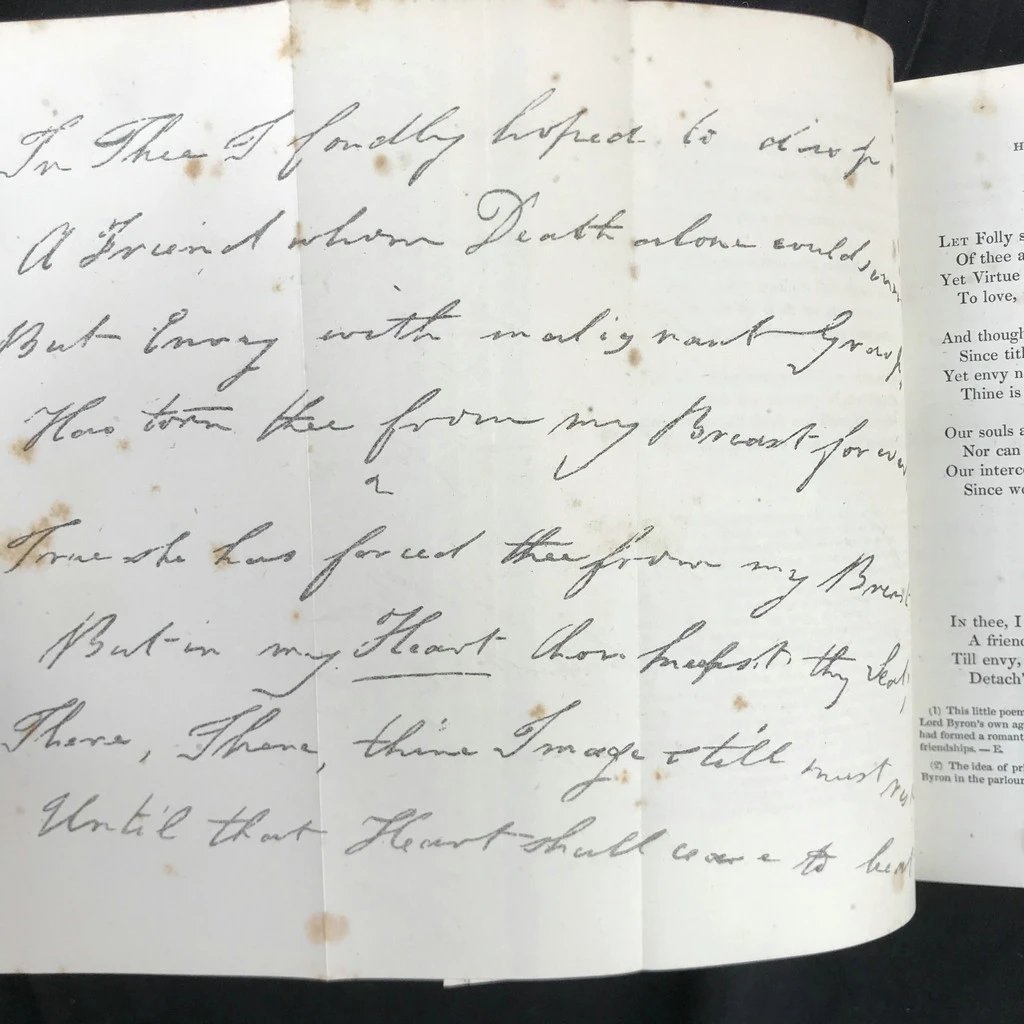 In Thee I fondly hoped to clasp
A Friend whom Death alone could
But Envy with malignant Grasp,
Has torn thee from my Breast for ever
2
True she has forced thee from my Breast
But in my Heart thou keepst thy Seat,
There, There, thine Image still must
Until that Heart shall cease to beat
H
LET Folly s
Of thee a
Yet Virtue
To love,
And though
Since titl
Yet envy n
Thine is
Our souls a
Nor can
Our interc
Since we
IN thee, I
A friend
Till envy,
Detach'
(1) This little poem
Lord Byron's own ag
had formed a romant
friendships. — E.
(2) The idea of pri
Byron in the parlour